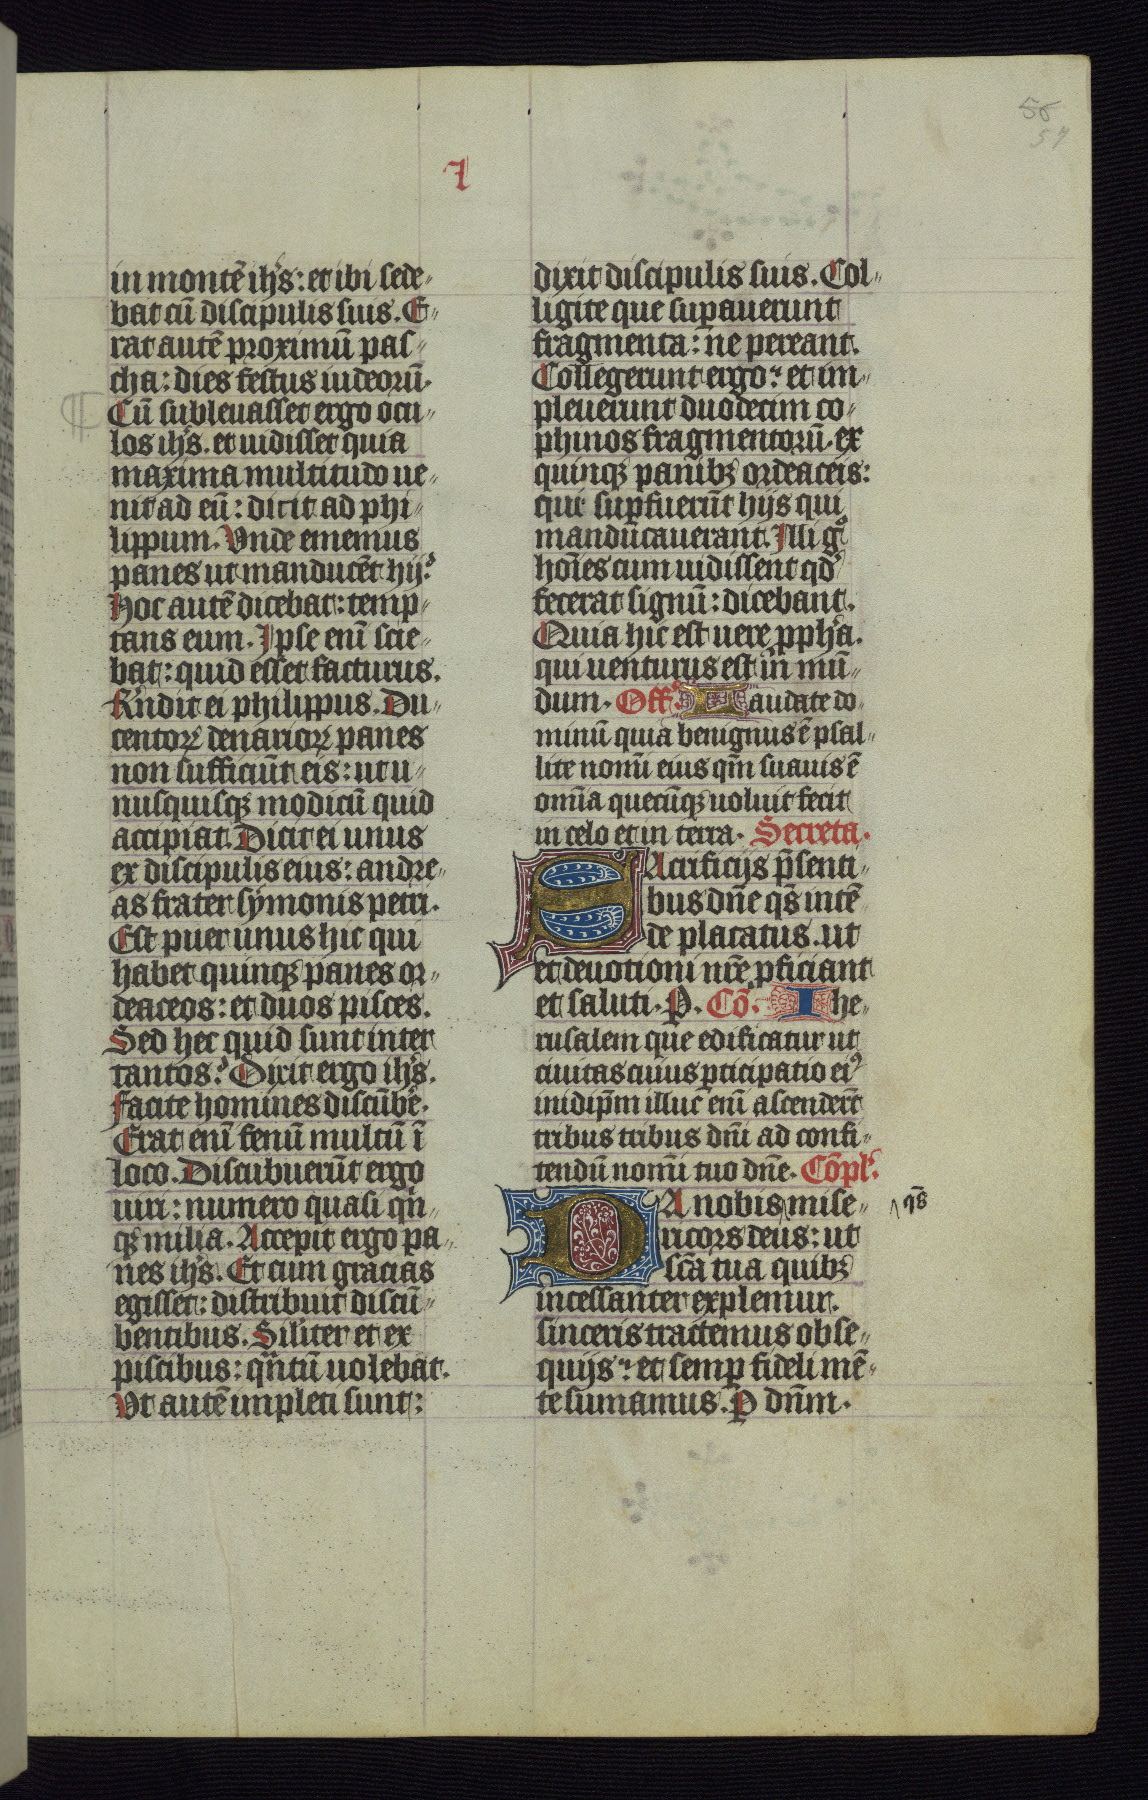 56
57
1
in montē ihs̄: et ibi sede-
bat cū discipulis suis. E-
rat autē proximū pas-
cha: dies festus iudeorū.
Cū subleuasset ergo ocu-
los ihs̄. et uidisset quia
maxima multitudo ue-
nit ad eū: dicit ad phi-
lippum. Unde ememus
panes ut manducēt hij?
Hoc autē dicebat: temp-
tans eum. Ipse enī scie-
bat: quid esset facturus.
Rn̄dit ei philippus. Du-
centoꝝ denarioꝝ panes
non sufficiūt eis: ut u-
nusquisqꝫ modicū quid
accipiat. Dicit ei unus
ex discipulis eius: andre-
as frater symonis petri.
Est puer unus hic qui
habet quinqꝫ panes or-
deaceos: et duos pisces.
Sed hec quid sunt inter
tantos? Dixit ergo ihs̄.
Facite homines discūbē̄.
Erat enī fenū multū ī
loco. Discubuerūt ergo
uiri: numero quasi qn̄-
qꝫ milia. Accepit ergo pa-
nes ihs̄. Et cum gracias
egisset: distribuit discū-
bentibus. Silīter et ex
piscibus: qn̄tū uolebat.
Ut autē impleti sunt:
dixit discipulis suis. Col-
ligite que sup̄auerunt
fragmenta: ne pereant.
Collegerunt ergo: et im-
pleuerunt duodecim co-
phinos fragmentorū. ex
quinqꝫ panibꝫ ordeaceis:
que sup̄fuerūt hijs qui
manducauerant. Illi gͦ
hoīes cum uidissent qd̄
fecerat signū: dicebant.
Quia hic est uere ꝓpha.
qui uenturus est in mū-
dum. Off̄. Laudate do-
minū quia benignus ē psal-
lite nomī eius qm̄ suauis ē
omīa quecūqꝫ uoluit fecit
in celo et in terra. Secreta.
SAcrificijs p̄senti-
bus dn̄e qs̄ intē-
de placatus. ut
et deuotioni nr̄e ꝓficiant
et saluti. P. Cō. Ihe-
rusalem que edificatur ut
ciuitas cuius ꝑticipatio eiꝰ
inidip̄m illuc enī ascenderūt
tribus tribus dn̄i ad confi-
tendū nomī tuo dn̄e. Cōpl.
DA nobis mise-
qs̄
ricors deus: ut
scā tua quibꝫ
incessanter explemur.
sinceris tractemus obse-
quijs: et semp̄ fideli mē-
te sumamus. P dn̄m.